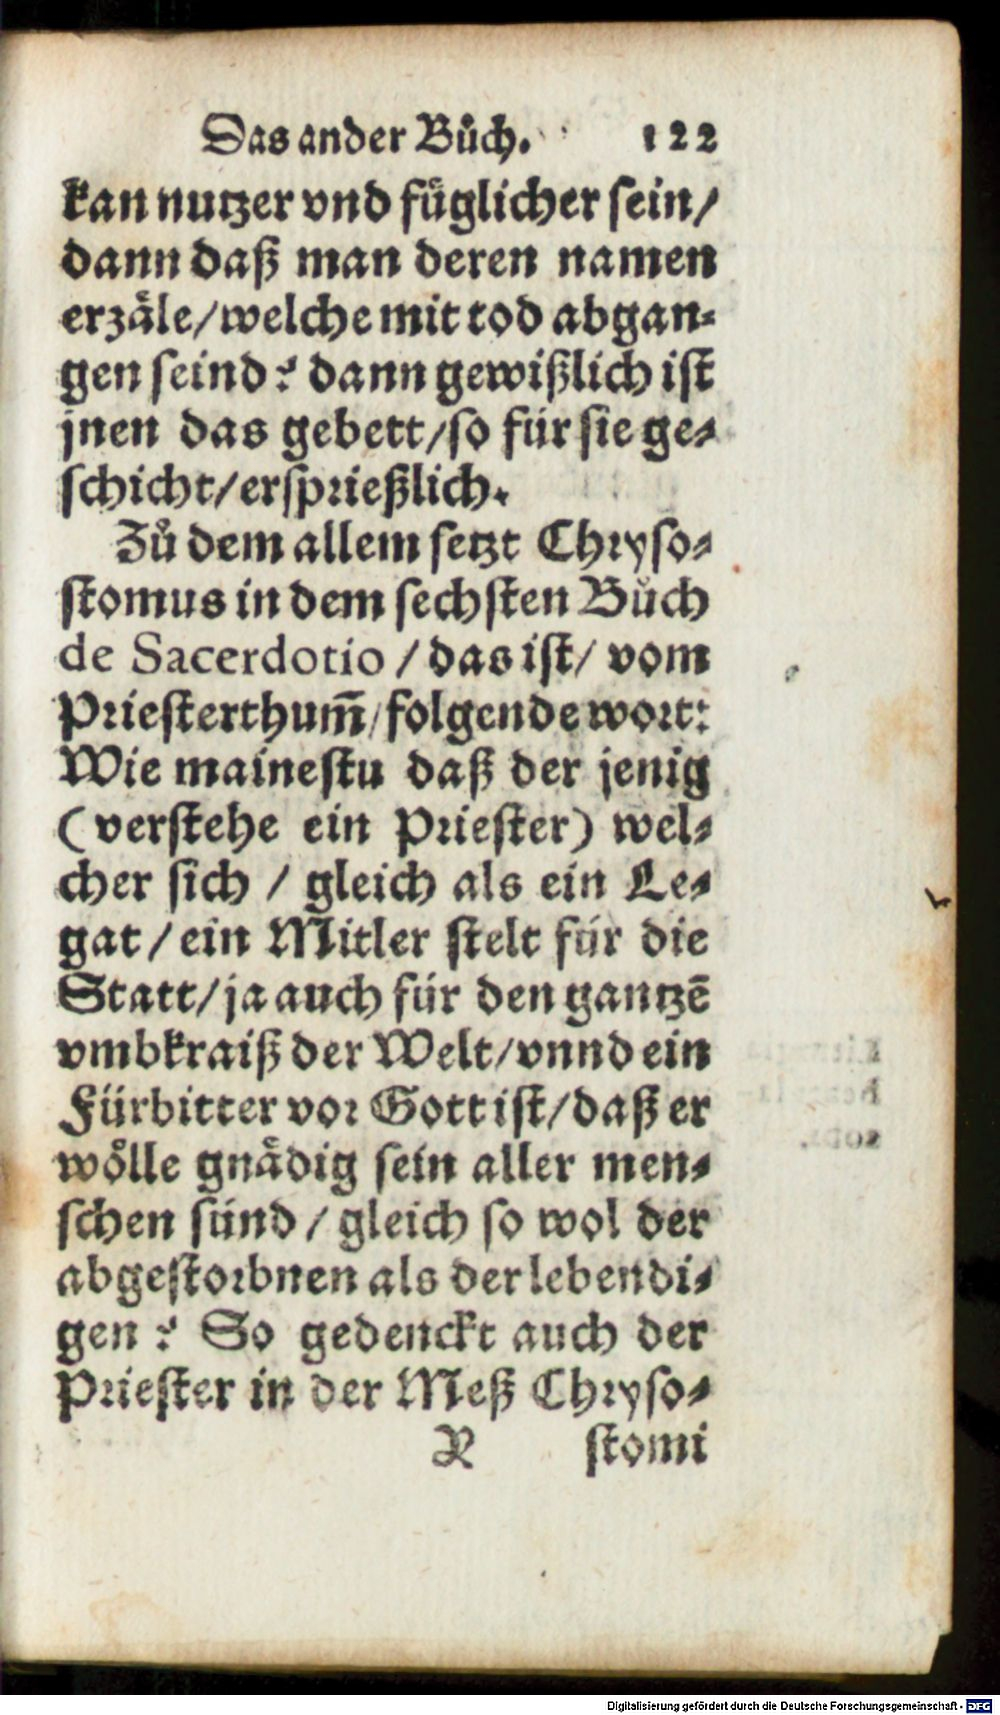 Das ander Bůch. 122
kan nutzer vnd fůglicher sein/
dann daß man deren namen
erzåle/welche mit tod abgan-
gen seind? dann gewißlich ist
jnen das gebett/so für sie ge-
schicht/ersprießlich.
Zů dem allem setzt Chryso-
stomus in dem sechsten Bůch
de Sacerdotio / das ist/ vom
Priesterthum̃/folgende wort:
Wie mainestu daß der jenig
(verstehe ein Priester) wel-
cher sich / gleich als ein Le-
gat / ein Mitler stelt für die
Statt/ja auch für den gantzẽ
vmbkraiß der Welt/vnnd ein
Fürbitter vor Gott ist/daß er
wölle gnådig sein aller men-
schen sünd / gleich so wol der
abgestorbnen als der lebendi-
gen? So gedenckt auch der
Priester in der Meß Chryso-
R stomi
Digitalisierung gefördert durch die Deutsche Forschungsgemeinschaft - DFG